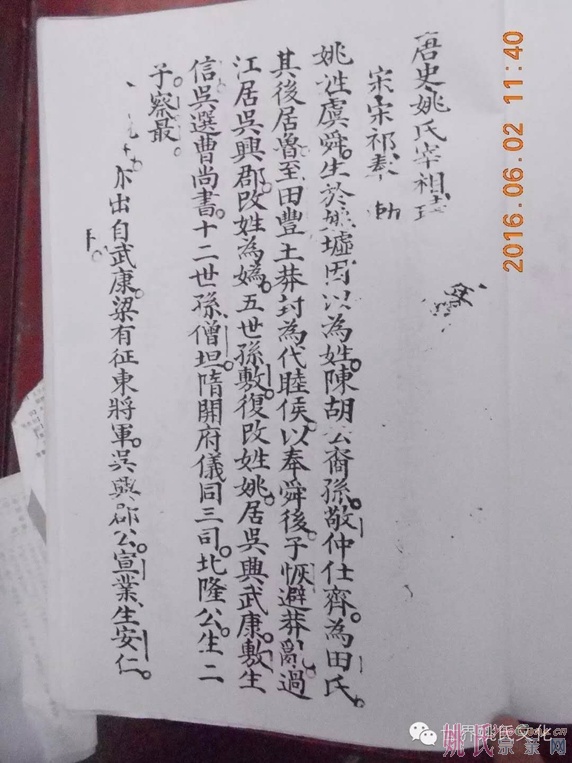 唐史姚氏宰相
宋宋祁奉
姚姓虞舜。生於 墟因以為姓。陳胡公裔孫。敬仲仕齊。為田氏。
其後居魯。至田豐王莽封為代睦侯。以奉舜後。子恢避莽亂。過
江居吳興郡。改姓為媯。五世孫敷。復改姓姚。居吳興武康。敷生
信吳選曹尚書。十二世孫。僧坦。隋開府儀同三司。北隆公。生二
子。察最。
出自武康。梁有征東將軍。吳興郡公。宣業。生安仁。
2016.06.02 11:40
世界姚氏文化
姚氏宗亲网